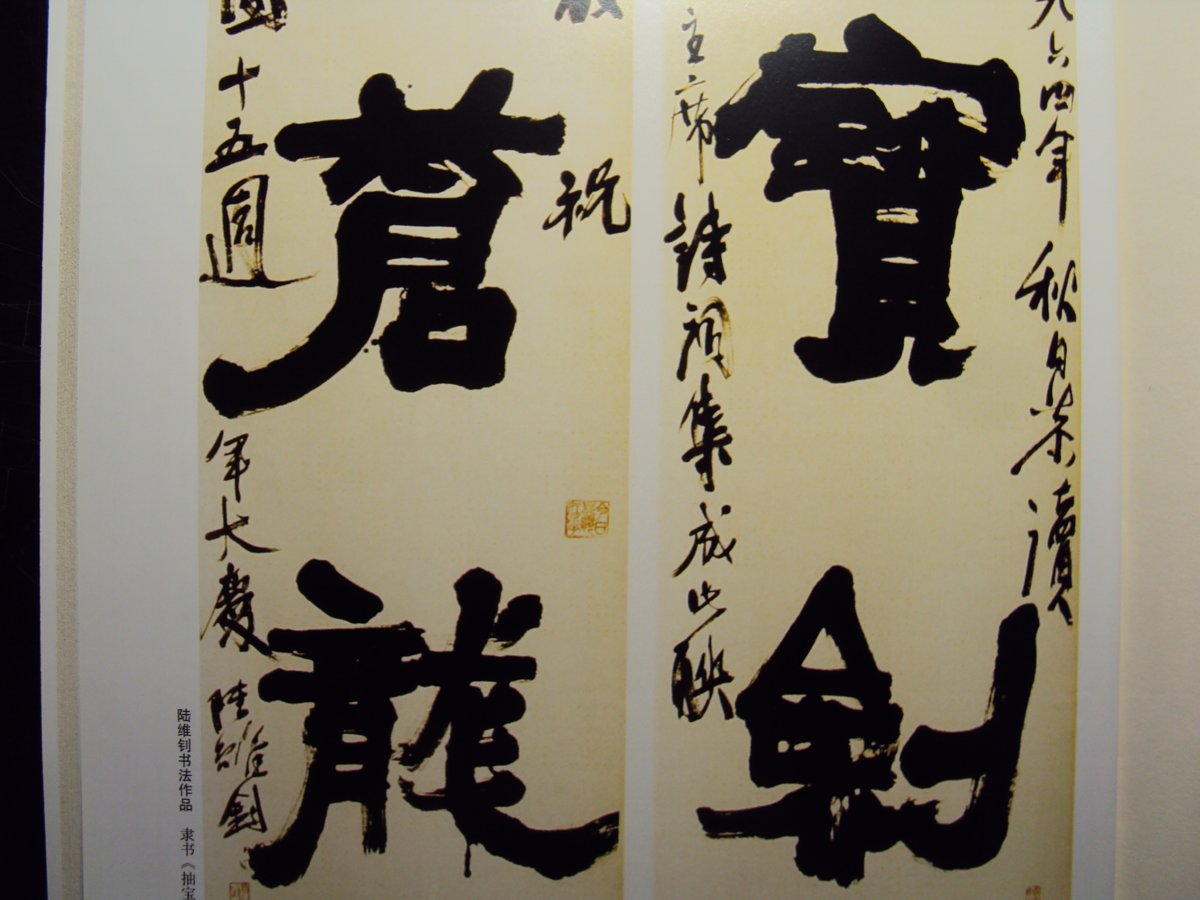 九六四年秋日恭讀
寶劍
主席詩詞集成此聯
祝
蒼龍
國十五週年大慶 陸維釗
陆维钊书法作品 隶书《抽宝